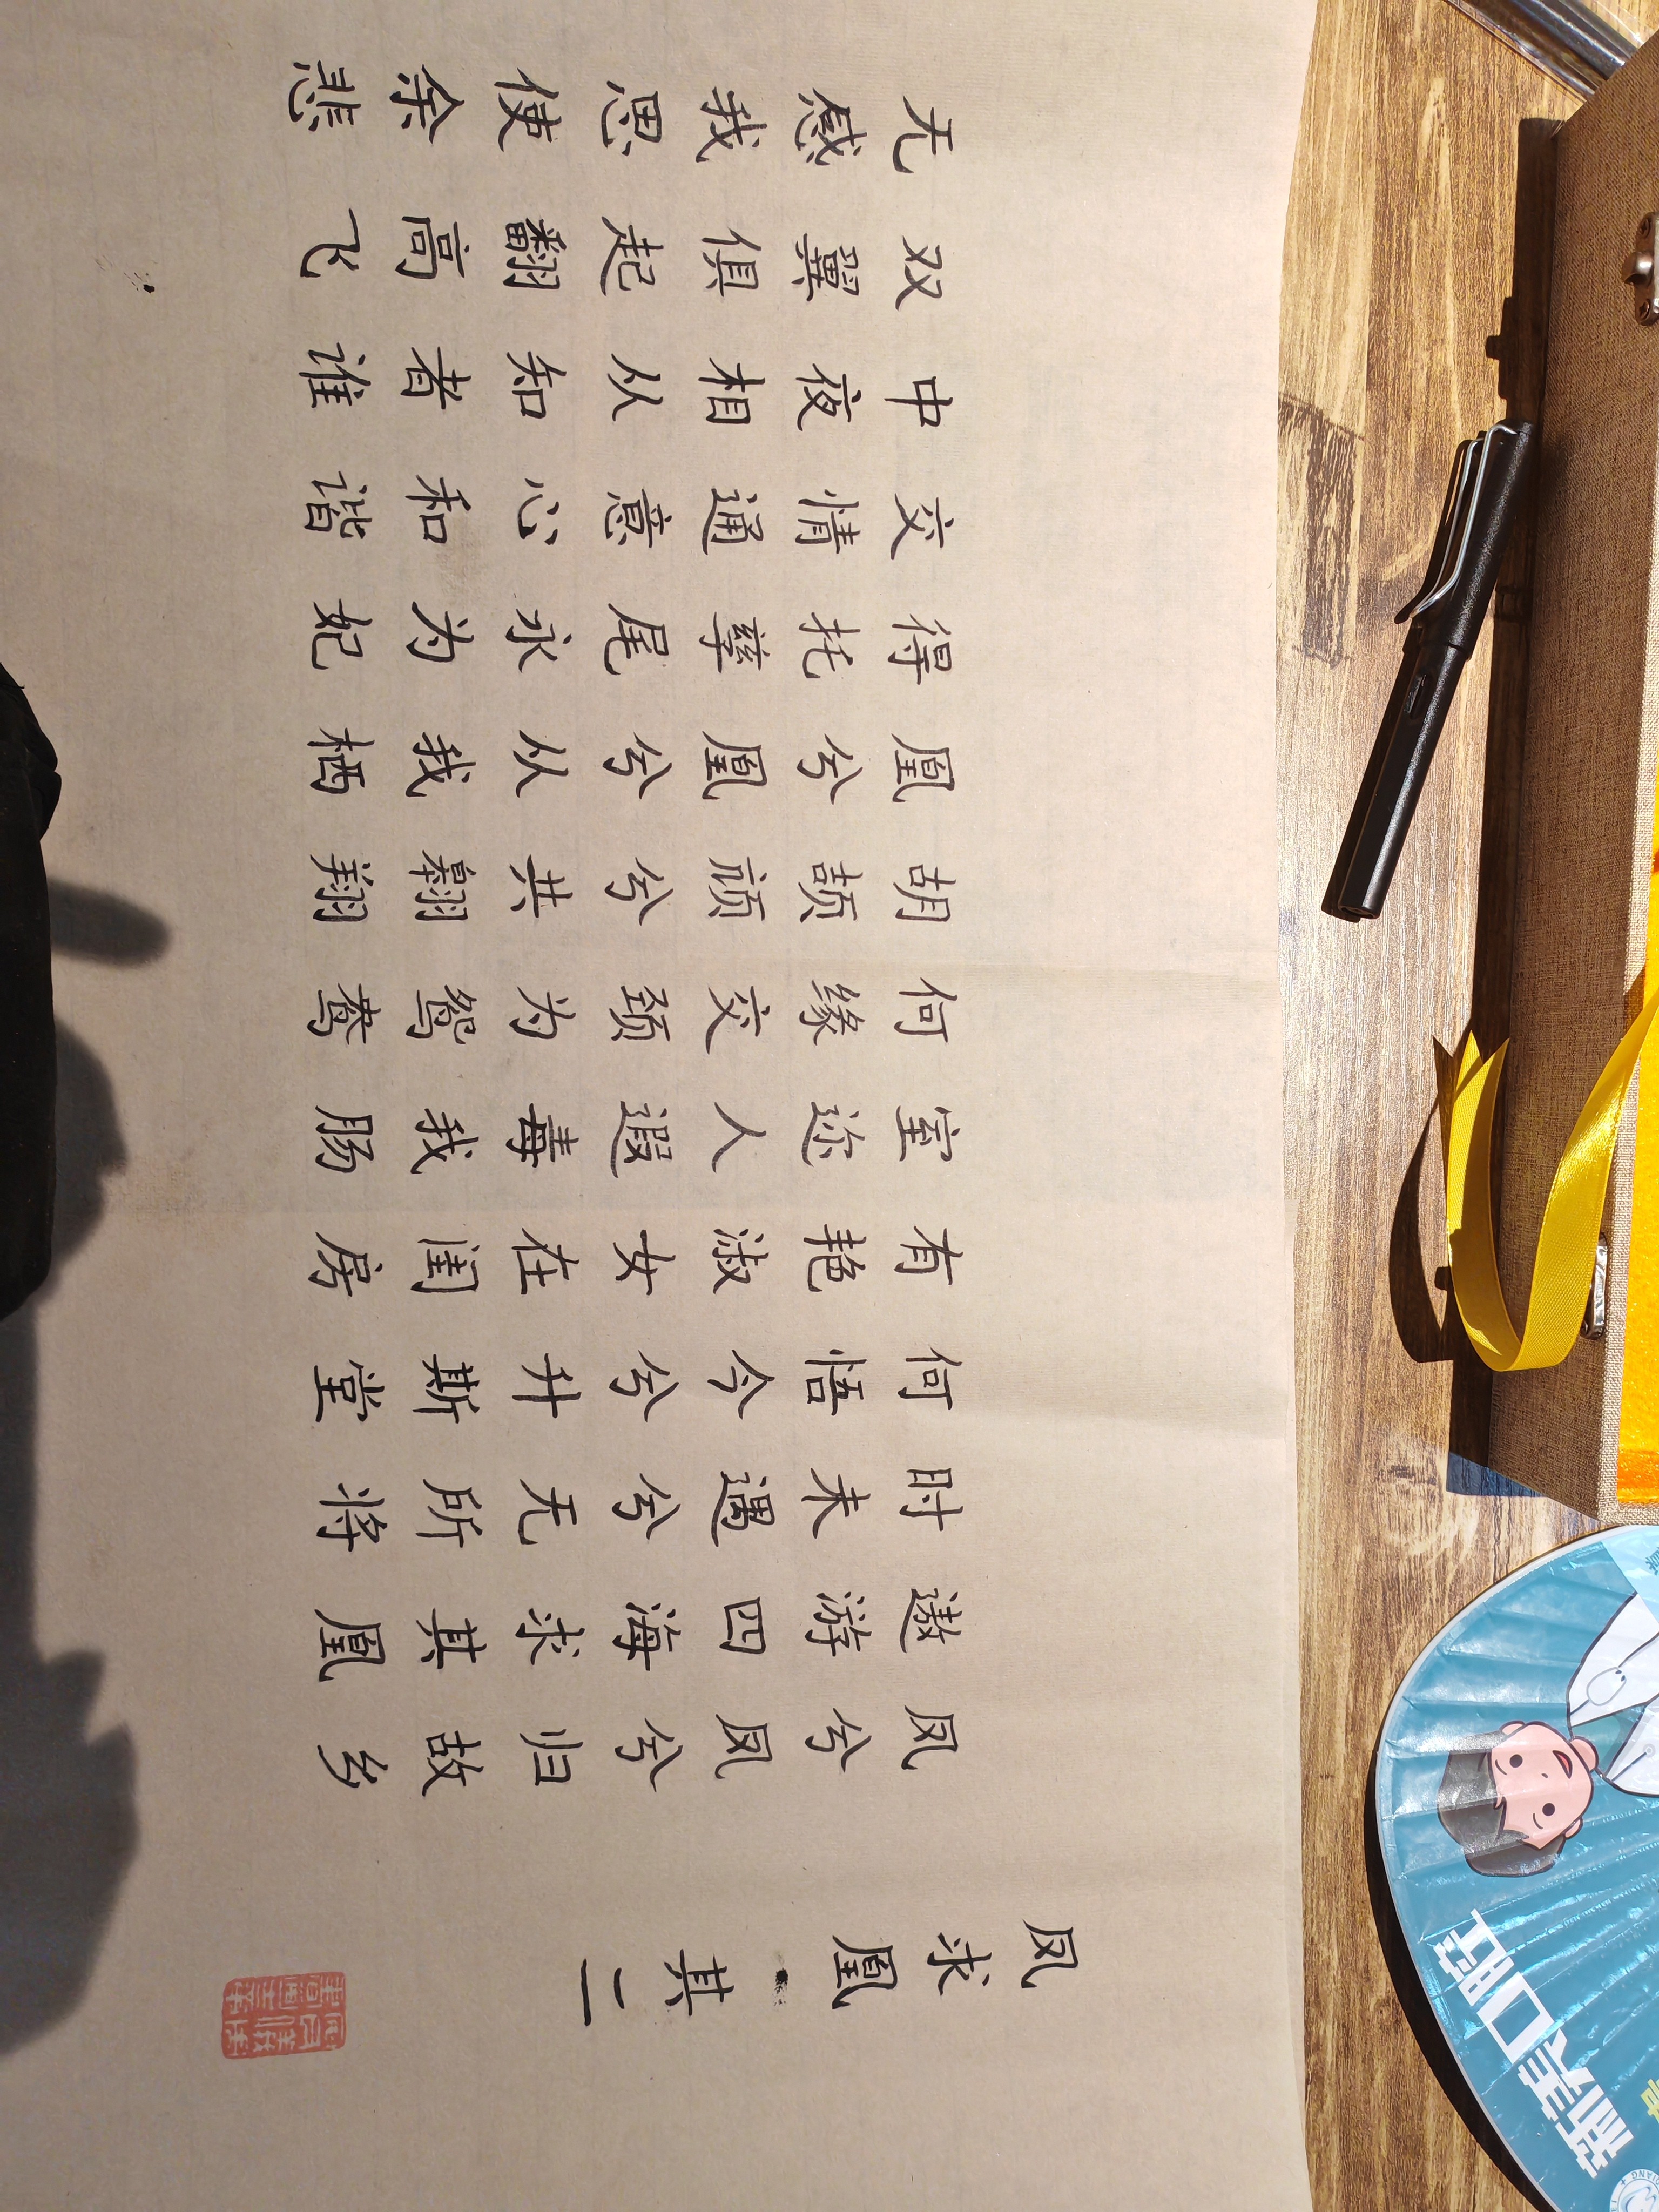 凤求凰·其二
凤兮凤兮归故乡
遨游四海求其凰
时未遇兮无所将
何悟今兮升斯堂
有艳淑女在闺房
室迩人遐毒我肠
何缘交颈为鸳鸯
胡颉颃兮共翱翔
凰兮凰兮从我栖
得托孳尾永为妃
交情通意心和谐
中夜相从知者谁
双翼俱起翻高飞
无感我思使余悲